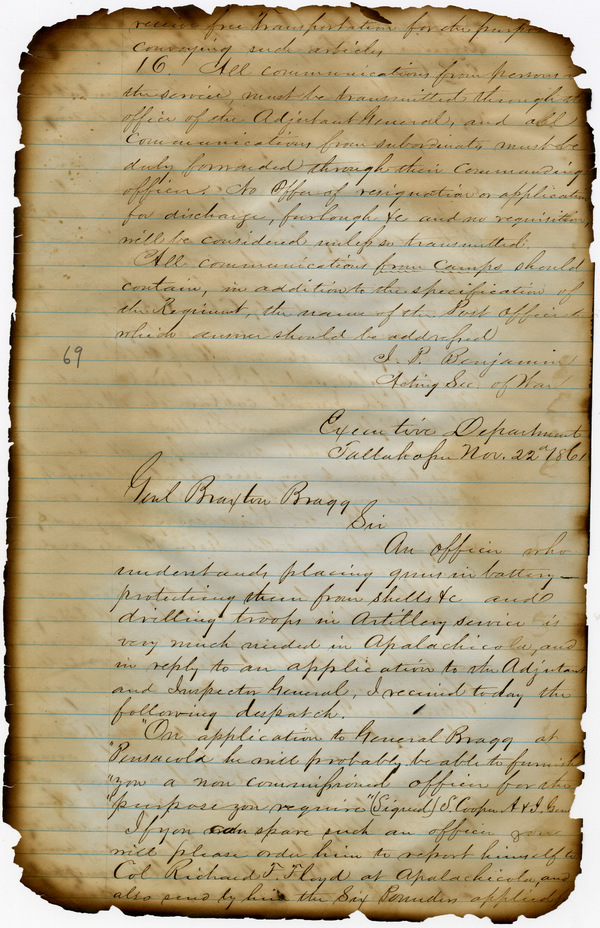 receive free transportation for the purpose
conveying such articles
16. All communications from persons
the service, must be transmitted through the
office of the Adjutant General, and all
communications from subordinates must be
duly forwarded through their commanding
officer. No offer of resignation or application
for discharge, furlough &c and no requisition
will be considered unless so transmitted.
All communications from Camps should
contain, in addition to the specification of
the Regiment, the name of the Post Office to
which answer should be addressed
J. P. Benjamin
Acting Sec. of War
69
Executive Department
Tallahassee Nov. 22d 1861
Genl Braxton Bragg
Sir
An officer who
understands placing guns in battery—
protecting them from shells &c and
drilling troops in Artillery service is
very much needed in Apalachicola, and
in reply to an application to the Adjutant
and Inspector General, I received today the
following despatch.
"On application to General Bragg at
"Pensacola he will probably be able to furnish
"you a non commissioned officer for the
"purpose you require" (Signed) S. Cooper A & I. Genl
If you can spare such an officer you
will please order him to report himself to
Col Richard F. Floyd at Apalachicola, and
also send by him the Six Pounders applied